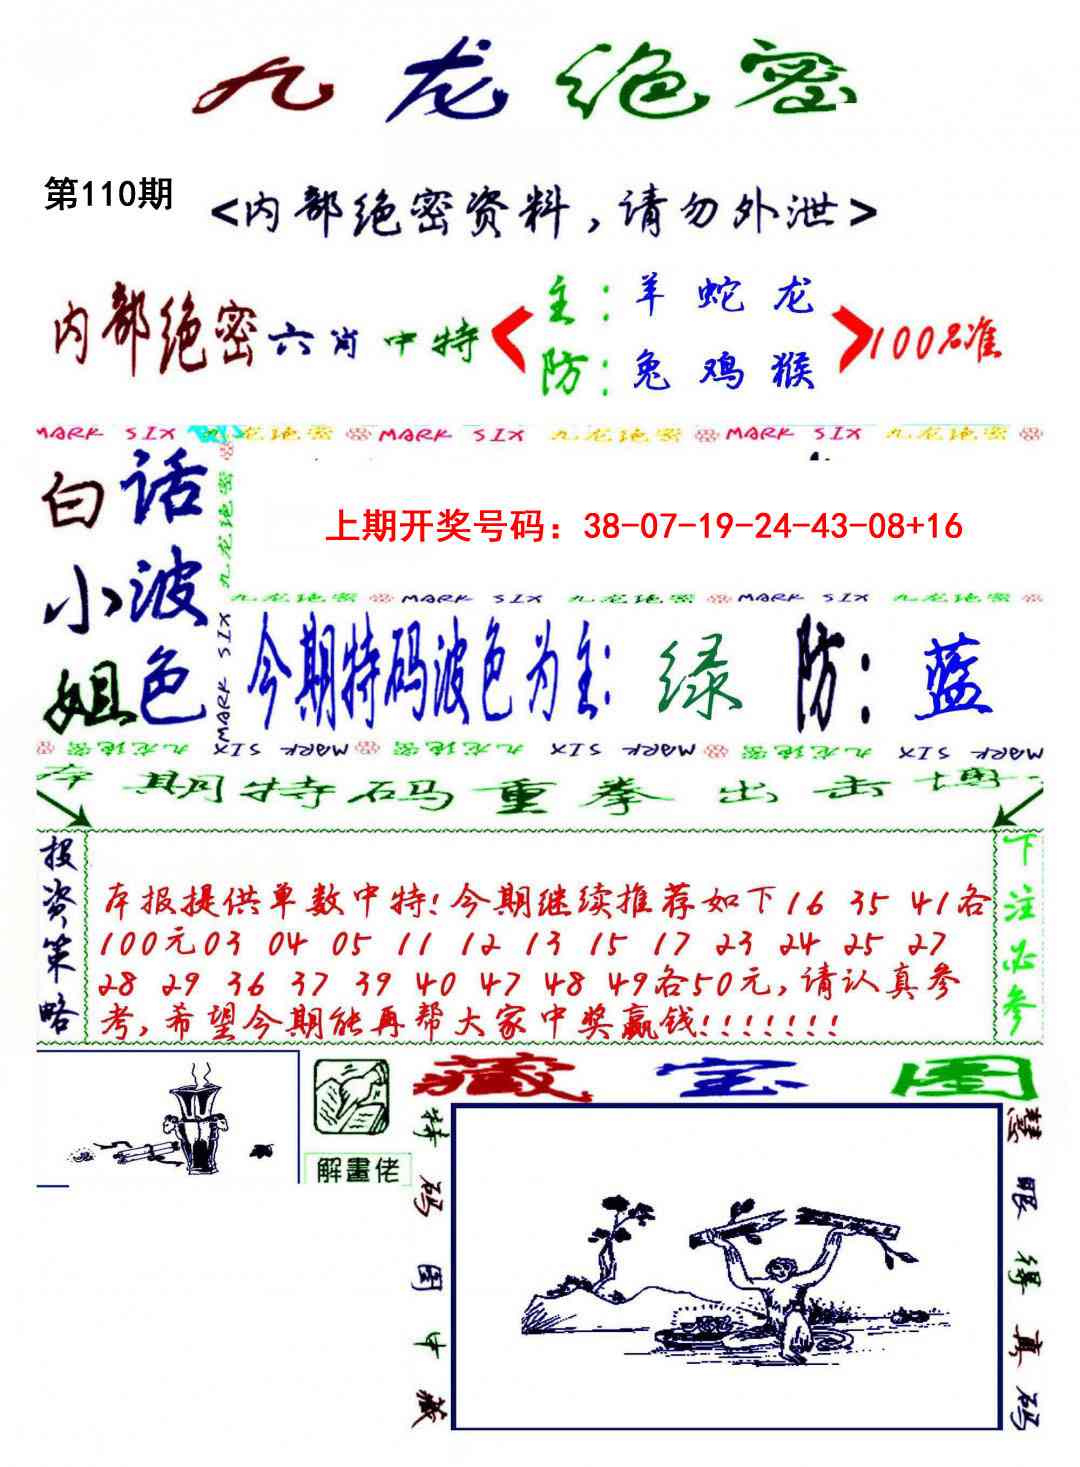 九龙绝密
第110期
<内部绝密资料,请勿外泄>
内部绝密六肖中特
主:羊蛇龙
防:兔鸡猴
100%准
MARK SIX 九龙绝密 MARK SIX 九龙绝密 MARK SIX 九龙绝密
白小姐
话波色
九龙绝密
MARK SIX
上期开奖号码：38-07-19-24-43-08+16
九龙绝密 MARK SIX 九龙绝密 MARK SIX 九龙绝密
今期特码波色为主:绿 防:蓝
九龙绝密 MARK SIX 九龙绝密 MARK SIX 九龙绝密 MARK SIX
本期特码重拳出击搏
投资策略
本报提供单数中特!今期继续推荐如下16 35 41各
100元03 04 05 11 12 13 15 17 23 24 25 27
28 29 36 37 39 40 47 48 49各50元,请认真参
考,希望今期能再帮大家中奖赢钱!!!!!!!
下注必参
解畫佬
藏宝图
特码图中藏
慧眼得真码